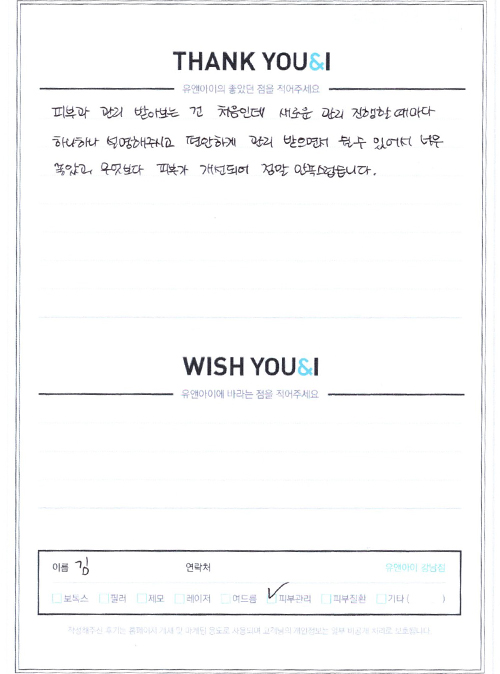 THANK YOU&I
유앤아이의 좋았던 점을 적어주세요
피부과 관리 받아보는 건 처음인데 새로운 관리 진행할 때마다
하나하나 설명해주시고 편안하게 관리 받으면서 쉴 수 있어서 너무
좋았고, 무엇보다 피부가 개선되어 정말 만족스럽습니다.
WISH YOU&I
유앤아이에 바라는 점을 적어주세요
이름 김 연락처 유앤아이 강남점
보톡스 필러 제모 레이저 여드름 피부관리 피부질환 기타 ( )
작성해주신 후기는 홈페이지 게재 및 마케팅 용도로 사용되며 고객님의 개인정보는 보호됩니다.